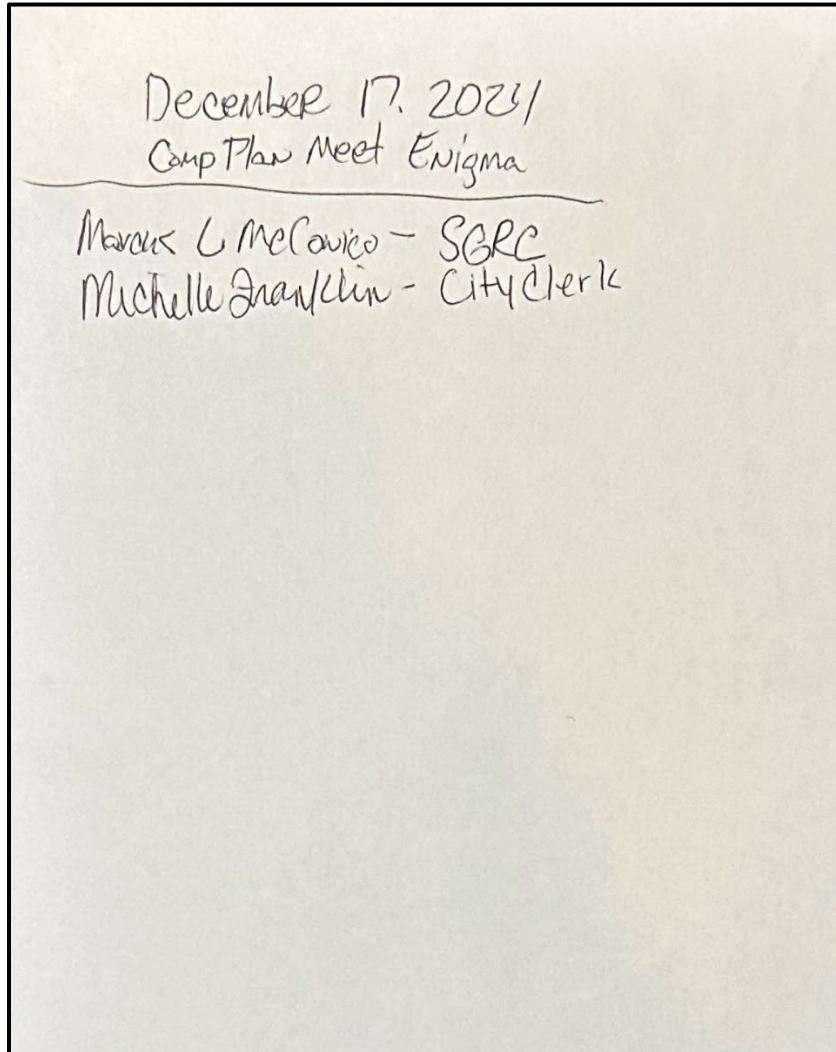 December 17. 2024
Comp Plan Meet Enigma
Marcus L - SGRC
Michelle Franklin - City Clerk